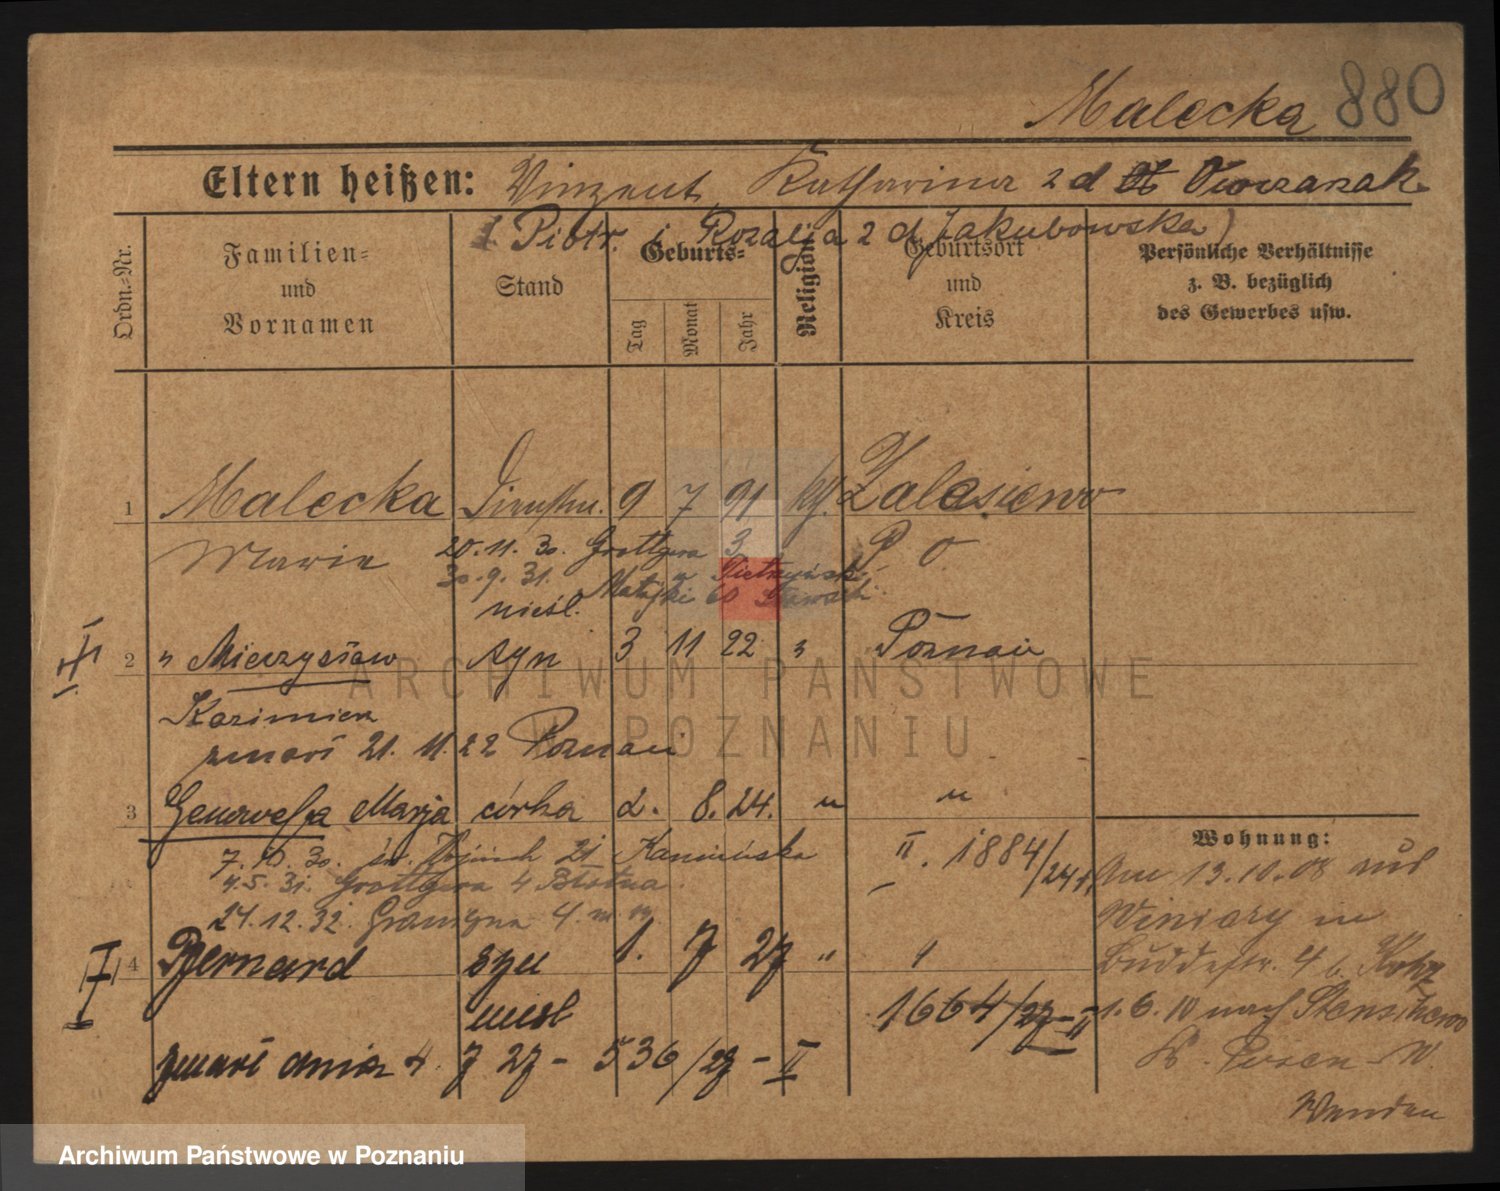 Malecka 880
Eltern heißen: Vinzent, Katharina 2 d Owczarzak
(Piotr. i Rozalja 2 d Jakubowska)
Ordn.-Nr.
Familien- und Vornamen
Stand
Geburts-
Tag
Monat
Jahr
Religion
Geburtsort und Kreis
Persönliche Verhältnisse z. B. bezüglich des Gewerbes usw.
1 Malecka 9 7 91 Zalesiewo
Maria 20.11.30. Grottgera 3 P O
30.9.31. Matejki 60
nieśl.
II
2 " Mieczysław syn 3 11 22 " Poznań
Kazimierz
zmarł 21. 11. 22 Poznań
3 Genowefa Marja córka 2. 8. 24. " "
7.10.30. św. Wojciech 21 Kamińska II. 1884/24
4.5.31. Grottgera 4
24.12.32. 4. m.
I
4 Bernard syn 1. 7 27 " "
nieśl 1664/27-II
zmarł dnia 4. 7 27 - 536/27 - II
Wohnung:
Am 13.10.08 aus
Winiary in
Buddestr. 4 b.
1.6.10 nach
Kr. Posen W.
ARCHIWUM PAŃSTWOWE
W POZNANIU
Archiwum Państwowe w Poznaniu